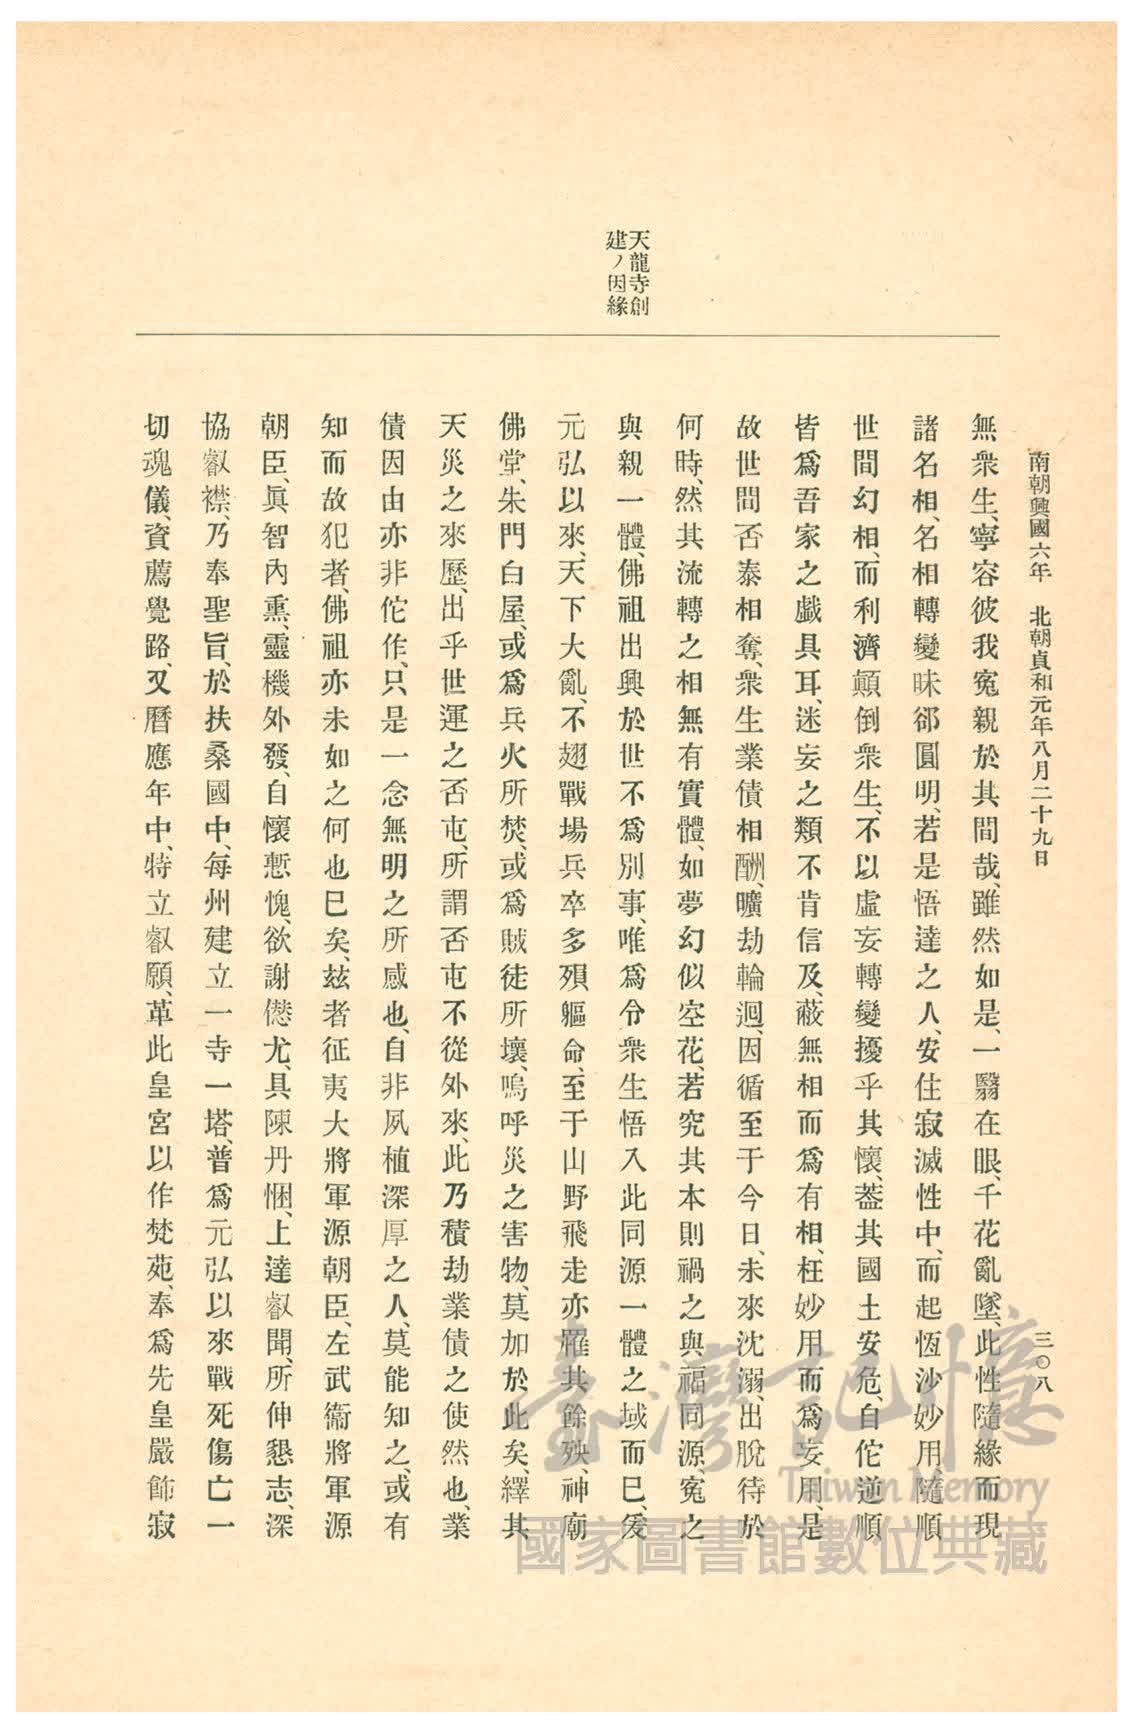 南朝興國六年　北朝貞和元年八月二十九日
三〇八
天龍寺創
建ノ因緣
無衆生、寧容彼我寃親於其間哉、雖然如是、一翳在眼、千花亂墜、此性隨緣而現
諸名相、名相轉變昧郤圓明、若是悟達之人、安住寂滅性中、而起恆沙妙用、隨順
世間幻相、而利濟顚倒衆生、不以虛妄轉變擾乎其懷、蓋其國土安危、自佗逆順
皆爲吾家之戲具耳、迷妄之類不肯信及、蔽無相而爲有相、枉妙用而爲妄用、是
故世間否泰相奪、衆生業債相酬、曠劫輪迴、因循至于今日、未來沈溺、出脫待於
何時、然其流轉之相無有實體、如夢幻似空花、若究其本則禍之與福同源、寃之
與親一體、佛祖出興於世不爲別事、唯爲令衆生悟入此同源一體之域而已、爰
元弘以來、天下大亂、不翅戰場兵卒多殞軀命、至于山野飛走亦罹其餘殃、神廟
佛堂、朱門白屋、或爲兵火所焚、或爲賊徒所壞、嗚呼災之害物、莫加於此矣、繹其
天災之來歷、出乎世運之否屯、所謂否屯不從外來、此乃積劫業債之使然也、業
債因由亦非佗作、只是一念無明之所感也、自非夙植深厚之人、莫能知之、或有
知而故犯者、佛祖亦未如之何也已矣、玆者征夷大將軍源朝臣、左武衞將軍源
朝臣、眞智內熏、靈機外發、自懷慙愧、欲謝僁尤、具陳丹悃、上達叡聞、所伸懇志、深
協叡襟、乃奉聖旨、於扶桑國中、每州建立一寺一塔、普爲元弘以來戰死傷亡一
切魂儀、資薦覺路、又曆應年中、特立叡願、革此皇宮以作梵苑、奉爲先皇嚴飾寂
臺灣記憶
Taiwan Memory
國家圖書館數位典藏